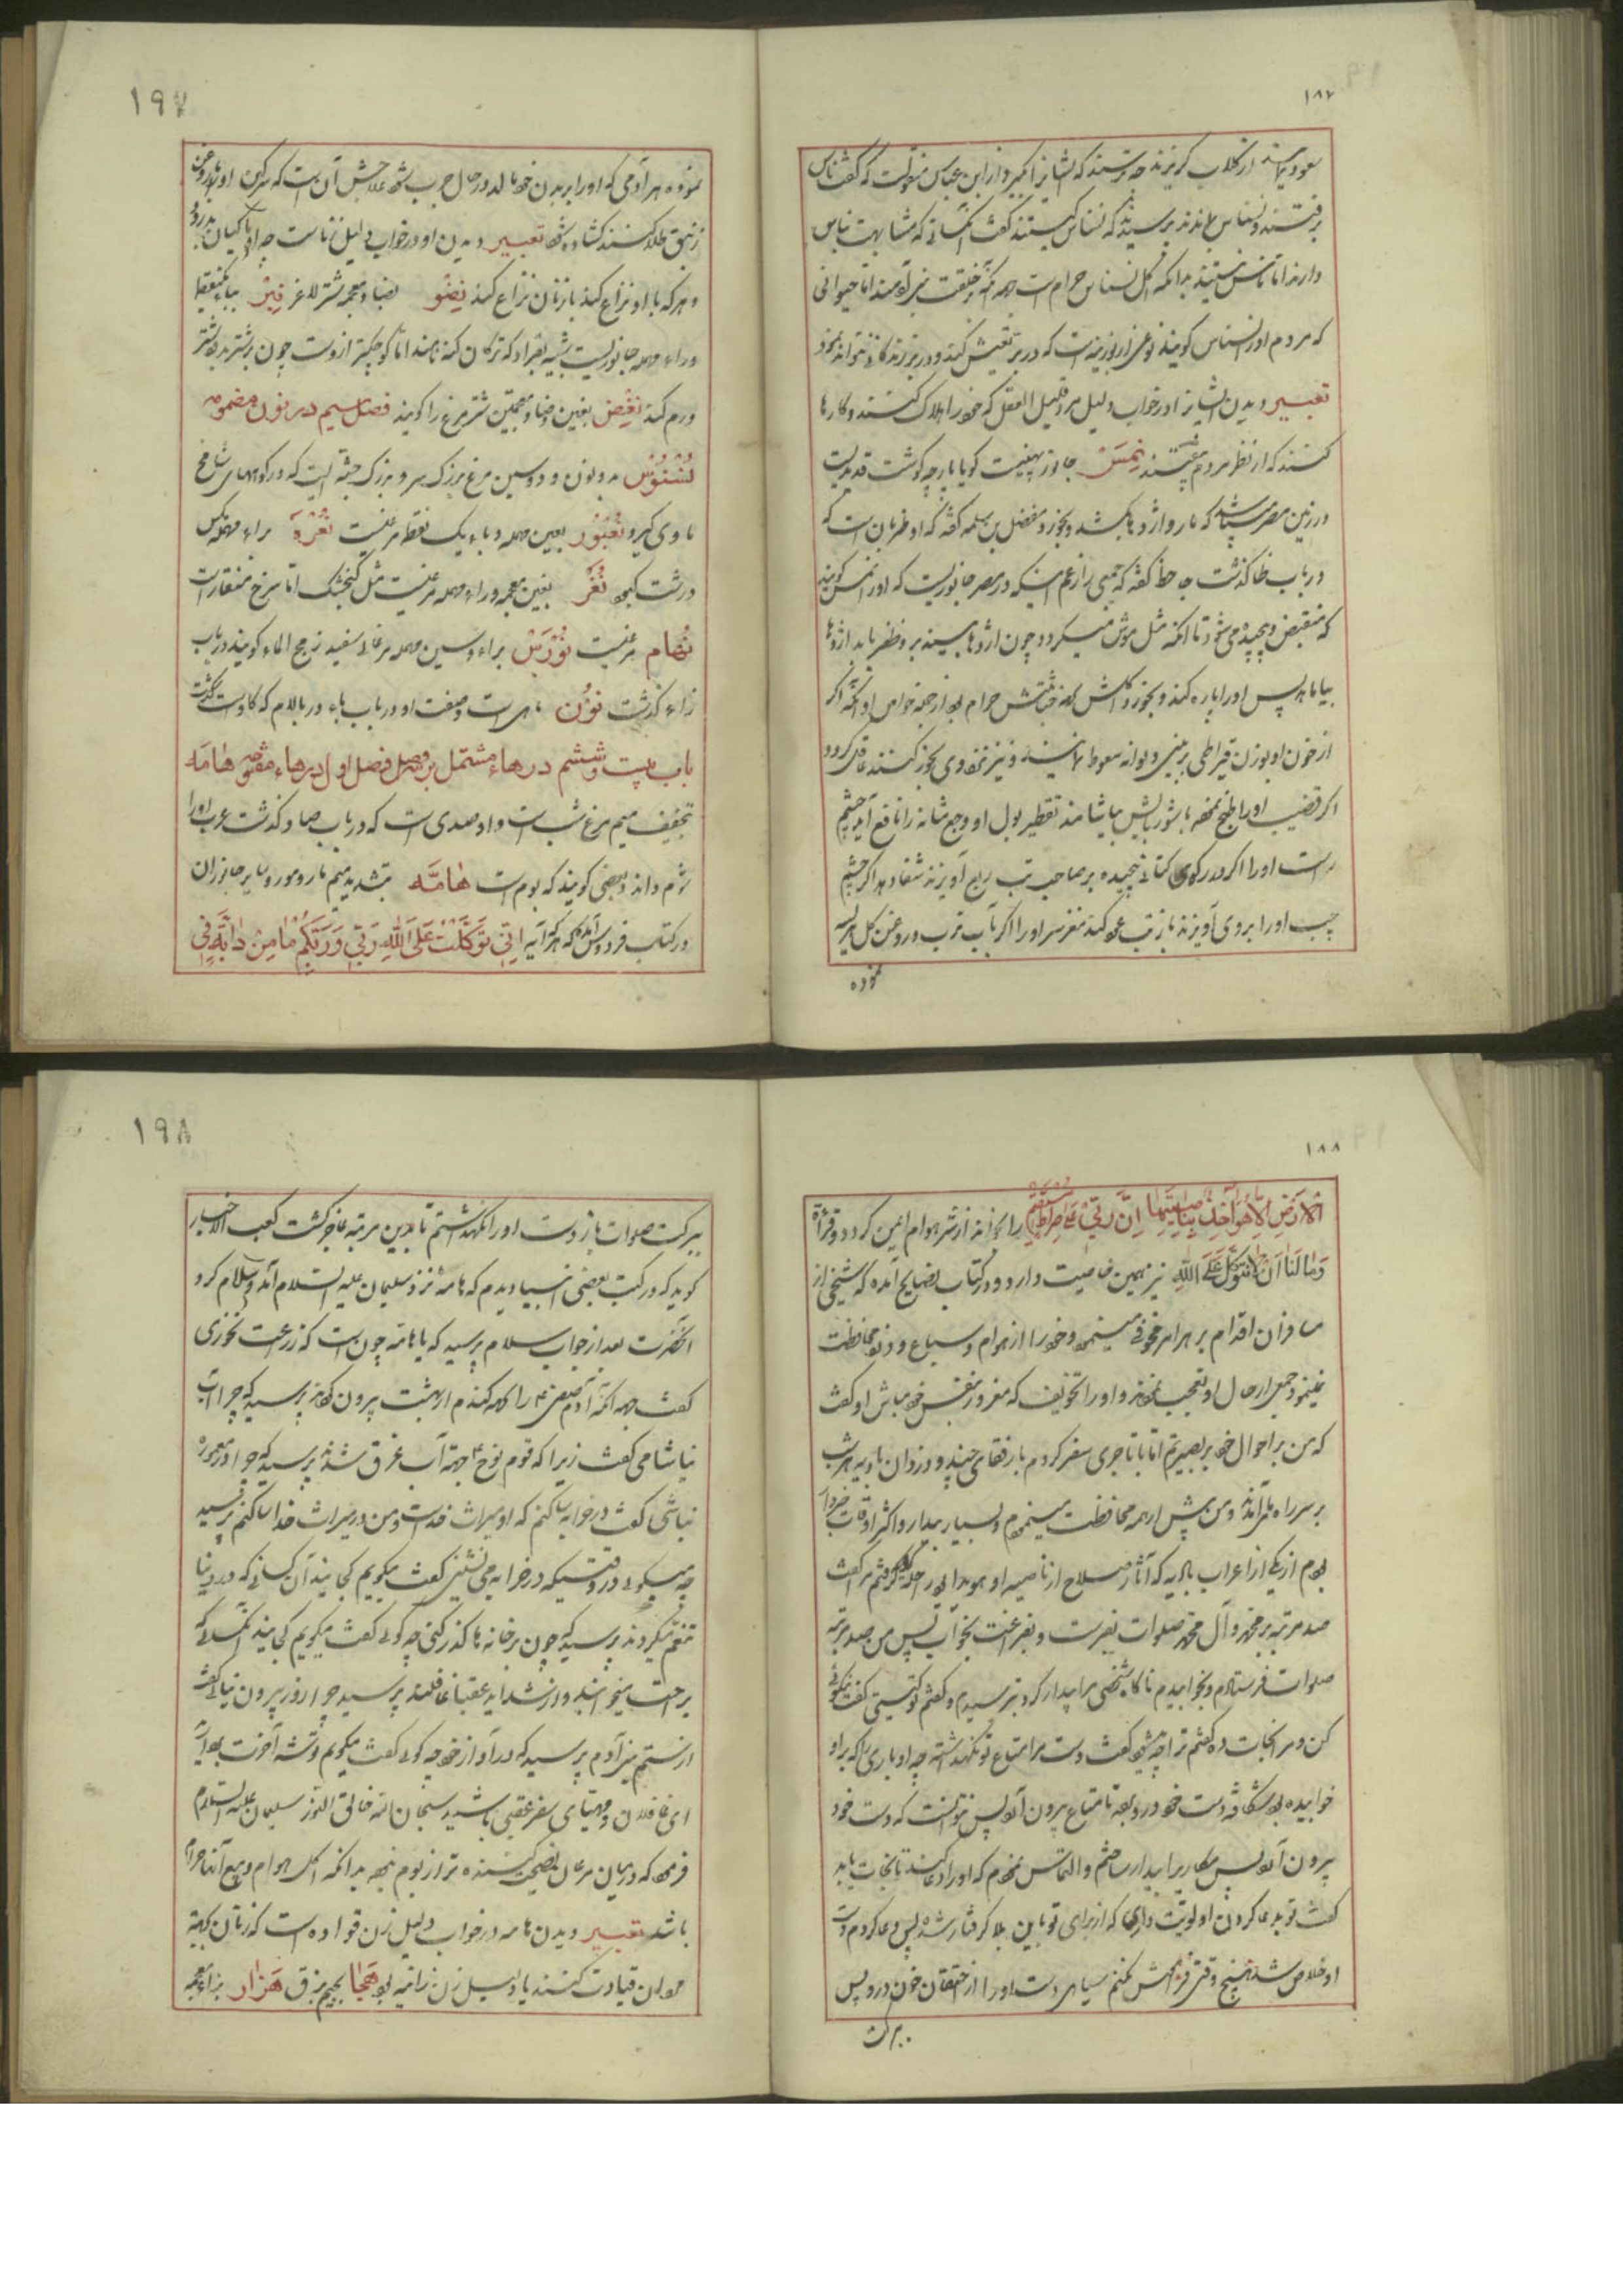 ۱۸۷
برفتند و نسناس بماندند پرسیدند که نسناس کیستند گفت آنکسانی که مشابهت بناس
دارند اما ناس نیستند بدانکه اکل نسناس حرام است جهة آنکه بر خلقت بنی آدمند اما حیوانی
که مردم او را نسناس گویند نوعی از بوزینه است که در بر تعیش کند و در بر زندگانی نتواند نمود
تعبیر دیدن ایشان در خواب دلیل مرد قلیل العقل که خود را هلاک کنند و کارها
کنند که از نظر مردم بیفتند نِمِسْ جانوریست گویا پارچه گوشت قدیدیست
در زمین مصر میباشد که مار و اژدها بکشد و بخورد و مفضل بن سلمه گفته که او ظربان است که
در باب ظا گذشت جاحظ گفته که جمعی را زعم اینکه در مصر جانوریست که او را نمس گویند
که منقبض و پیچیده می شود تا آنکه مثل موش میگردد و چون اژدها بیند بر او ظفر یابد اژدها
بیاماهد پس او را پاره کند و بخورد اکلش بجهة خباثتش حرام بود از جمله خواص او آنکه اگر
از خون او بوزن قیراطی بر بینی دیوانه سعوط نمایند و نیز تخوری بخور کنند عاقل گردد
اگر قضیب او را طبخ نموده با شوربایش بیاشامند تقطیر بول او وجع مثانه را نافع آید چشم
راست او را اگر در رکوی کتانی پیچیده بر صاحب تب ربع آویزند شفا دهد اگر چشم
چپ او را بر وی آویزند باز تب عود کند مغز سر او را اگر بآب ترب و روغن گل
نموده
۱۹۷
نموده هر آدمی که او را بر بدن خود بمالد در حال جرب شود علاجش آن است که سرگین او با روغن
زنبق طلا کنند گشاده شود تعبیر دیدن او در خواب دلیل زنا است
و هر که با او نزاع کند با زنان نزاع کند نِضْو بضاد معجمه شتر لاغر نِبْر بباء یکنقطه
و راء مهمله جانوریست شبیه بقراد که ترکان کنه نامند اما کوچکتر از اوست چون بر شتر بدود شتر
ورم کند نغض بغین و ضاد معجمتین شتر مرغ را گویند فصل سیم در نون مضمومه
نُسْنُوس بدو نون و دو سین مرغ بزرگ سر و بزرگ جثه ایست که در کوههای شامخ
ماوی گیرد نُعْبُور بعین مهمله و باء یک نقطه مرغیست نُعْرَه براء مهمله مگس
درشت کبود نُغَر بغین معجمه و راء مهمله مرغیست مثل گنجشک اما سرخ منقار است
نُهام مرغیست نُوْرَسْ براء و سین مهمله مرغابی سفید زمج الماء گویند در باب
زاء گذشت نُوْن ماهی است وصفت او در باب باء در بالام که گاو است گذشت
باب بیست و ششم در هاء مشتمل بر سه فصل فصل اول در هاء مفتوحه هامَه
بتخفیف میم مرغ شب است و او صدی است که در باب صاد گذشت عرب او را
شوم داند و بعضی گویند که بوم است هامَّه بتشدید میم مار و مور و سایر جانوران
در کتاب فردوس آمده که هر که آیه اِنِّی تَوَکَّلْتُ عَلَی اللهِ رَبِّی وَ رَبِّکُمْ مٰا مِنْ دٰابَّةٍ فِی
۱۸۸
الْاَرْضِ اِلّٰا هُوَ آخِذٌ بِنٰاصِیَتِهٰا اِنَّ رَبِّی عَلٰی صِرٰاطٍ مُسْتَقِیمٍ را بخواند از شر هوام ایمن گردد و قرائة
وَ مٰا لَنٰا اَنْ لٰا نَتَوَکَّلَ عَلَی اللهِ نیز همین خاصیت دارد و در کتاب نصایح آمده که شخصی از
مسافران اقدام بر هر امر مخوفی مینمود و خود را از هوام و سباع و دزد محافظت
نمینمود جمعی از حال او تعجب نمودند و او را تخویف که مغرور بنفس خود مباش او گفت
که من بر احوال خود بصیرتم اما با تاجری سفر کردم با رفقای چند و دزدان بادیه هر شب
بر سر راه می آمدند و من بیش از همه محافظت مینمودم و بسیار بیدار و اکثر اوقات
بودم از یکی از اعراب بادیه که آثار صلاح از ناصیه او هویدا بود گفت
صد مرتبه بر محمد و آل محمد صلوات بفرست و بفراغت بخواب پس من صد مرتبه
صلوات فرستادم و بخوابیدم ناگاه شخصی مرا بیدار کرد بترسیدم و گفتم تو کیستی گفت نیکوئی
کن و مرا نجات ده گفتم ترا چه میشود گفت دست مرا متاع تو نگهداشته چه او باری را که بر او
خوابیده بود شکافته دست خود در او بود تا متاع بیرون آورد پس نتوانست که دست خود
بیرون آورد پس مکاری را بیدار ساختم و التماس نمودم که او را دعا کند تا نجات یابد
گفت تو بدعا کردن اولویت داری که از برای تو باین بلا گرفتار شده پس دعا کردم دست
او خلاص شد
ببرکت
۱۹۸
ببرکت صلوات باز دوست او را نگهداشتم تا بدین مرتبه عاجز گشت کعب الاحبار
گوید که در کتب بعضی انبیا دیدم که هامه نزد سلیمان علیه السلام آمد و سلام کرد
آنحضرت بعد از جواب سلام پرسید که یا هامه چون است که زرعت نخوری
گفت جهة آنکه آدم صفی را گندم از بهشت بیرون کرد پرسید که چرا آب
نیاشامی گفت زیرا که قوم نوح بجهة آب غرق شدند پرسید که چرا در معموره
نباشی گفت در خرابه ساکنم که او میراث خداست و من در میراث خدا ساکنم پرسید
چه میگوئی در وقتیکه در خرابه می نشینی گفت میگویم کجایند آن کسانی که در دنیا
تنعم میکردند پرسید که چون بر خانه ها گذر کنی چه گوئی گفت میگویم کجایند آنکسانی که
براحت میخوابند و از شداید عقبا غافلند پرسید چرا روز بیرون نیائی گفت
از ستم بنی آدم پرسید که در آواز خود چه گوئی گفت میگویم توشه آخرت بردارید
ای غافلان و مهیای سفر عقبی باشید سبحان الله خالق النور سلیمان علیه السلام
فرمود که در میان مرغان نصیحت کننده تر از بوم نبود بدانکه اکل هوام و بیع آنها حرام
باشد تعبیر دیدن هامه در خواب دلیل زن قواده است که زنان بجهة
مردان قیادت کنند یا دلیل زن زانیه بود هَجٰا بجیم بزق هَزٰار بزاء معجمه